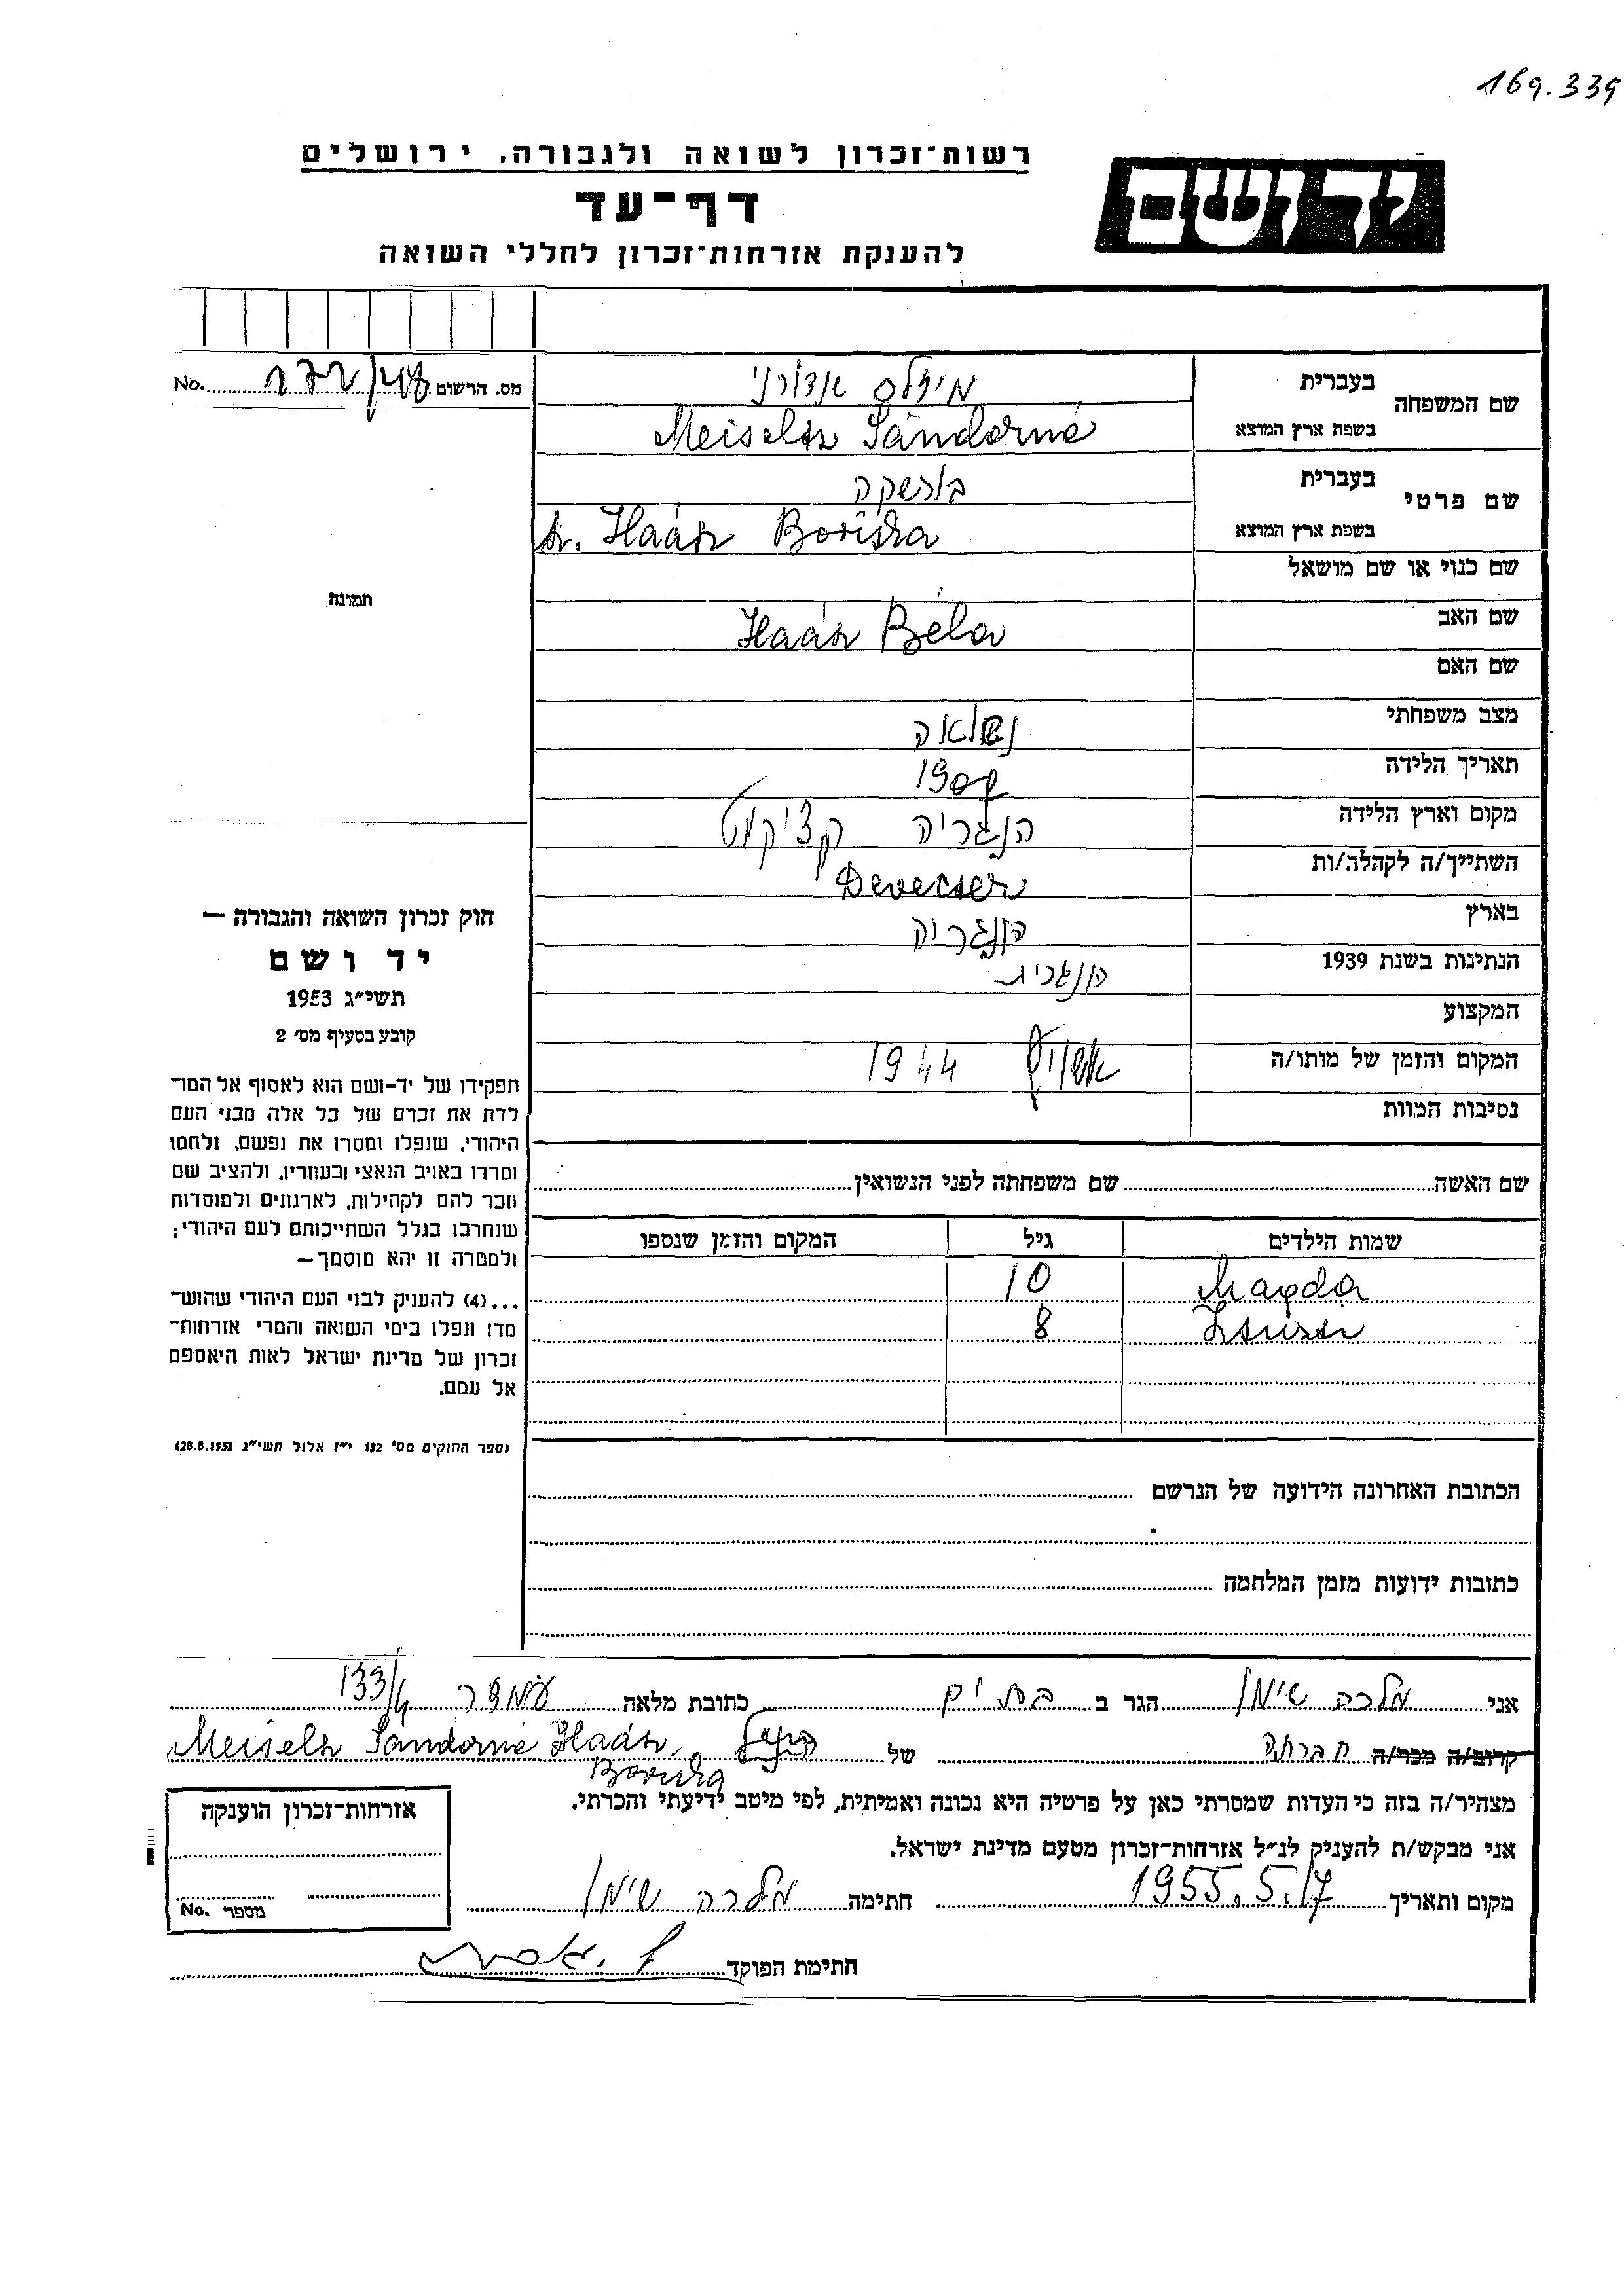 169.339
רשות־זכרון לשואה ולגבורה, ירושלים
יד ושם
דף־עד
להענקת אזרחות־זכרון לחללי השואה
מס. הרשום No.
שם המשפחה
בעברית
בשפת ארץ המוצא Meiseln Sándorné
שם פרטי
בעברית בורשקה
בשפת ארץ המוצא Haán Boriska
שם כנוי או שם מושאל
שם האב Haán Béla
שם האם
מצב משפחתי נשואה
תאריך הלידה
מקום וארץ הלידה הנגריה
השתייך/ה לקהלה/ות Devecser
בארץ הונגריה
הנתינות בשנת 1939 הונגרית
המקצוע
המקום והזמן של מותו/ה אשויץ 1944
נסיבות המוות
שם האשה שם משפחתה לפני הנשואין
שמות הילדים גיל המקום והזמן שנספו
Magda 10
Zsuzsa 8
הכתובת האחרונה הידועה של הנרשם
כתובות ידועות מזמן המלחמה
תמונה
חוק זכרון השואה והגבורה —
יד ושם
תשי״ג 1953
קובע בסעיף מס׳ 2
תפקידו של יד-ושם הוא לאסוף אל המו־
לדת את זכרם של כל אלה מבני העם
היהודי, שנפלו ומסרו את נפשם, נלחמו
ומרדו באויב הנאצי ובעוזריו, ולהציב שם
וזכר להם לקהילות, לארגונים ולמוסדות
שנחרבו בגלל השתייכותם לעם היהודי;
ולמטרה זו יהא מוסמך—
...(4) להעניק לבני העם היהודי שהוש־
מדו ונפלו בימי השואה והמרי אזרחות־
זכרון של מדינת ישראל לאות היאספם
אל עמם.
(ספר החוקים מס׳ 132 י״ז אלול תשי״ג 28.8.1953)
אני מלכה שימן הגר ב בת ים כתובת מלאה
קרוב/ה מכר/ה חברתה של Meiseln Sándorné Haán
Boriska
מצהיר/ה בזה כי העדות שמסרתי כאן על פרטיה היא נכונה ואמיתית, לפי מיטב ידיעתי והכרתי.
אני מבקש/ת להעניק לנ״ל אזרחות־זכרון מטעם מדינת ישראל.
מקום ותאריך 1955.5.17 חתימה מלכה שימן
חתימת הפוקד
אזרחות־זכרון הוענקה
מספר No.